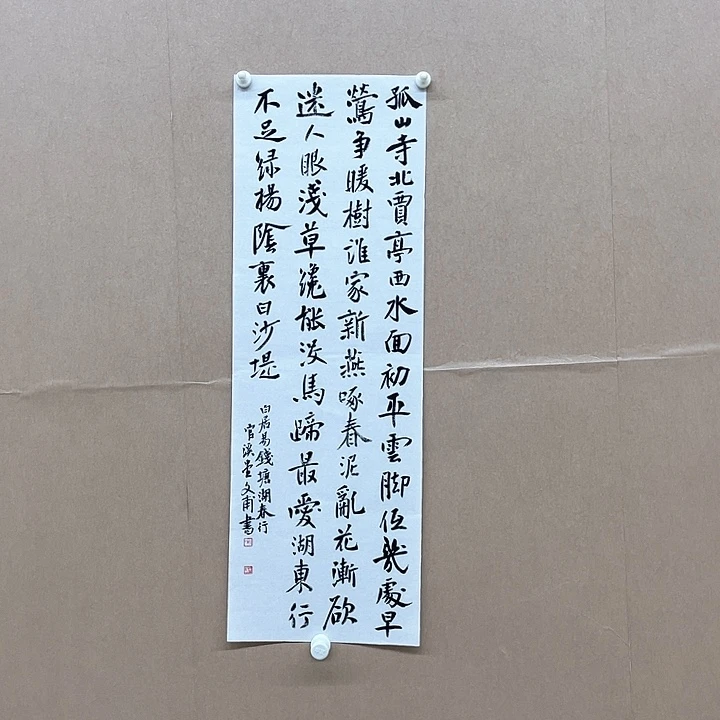 孤山寺北賈亭西水面初平雲脚低幾處早
鶯爭暖樹誰家新燕啄春泥亂花漸欲
迷人眼淺草纔能沒馬蹄最愛湖東行
不足绿楊陰裏白沙堤
白居易錢塘湖春行
官溪堂文甫書